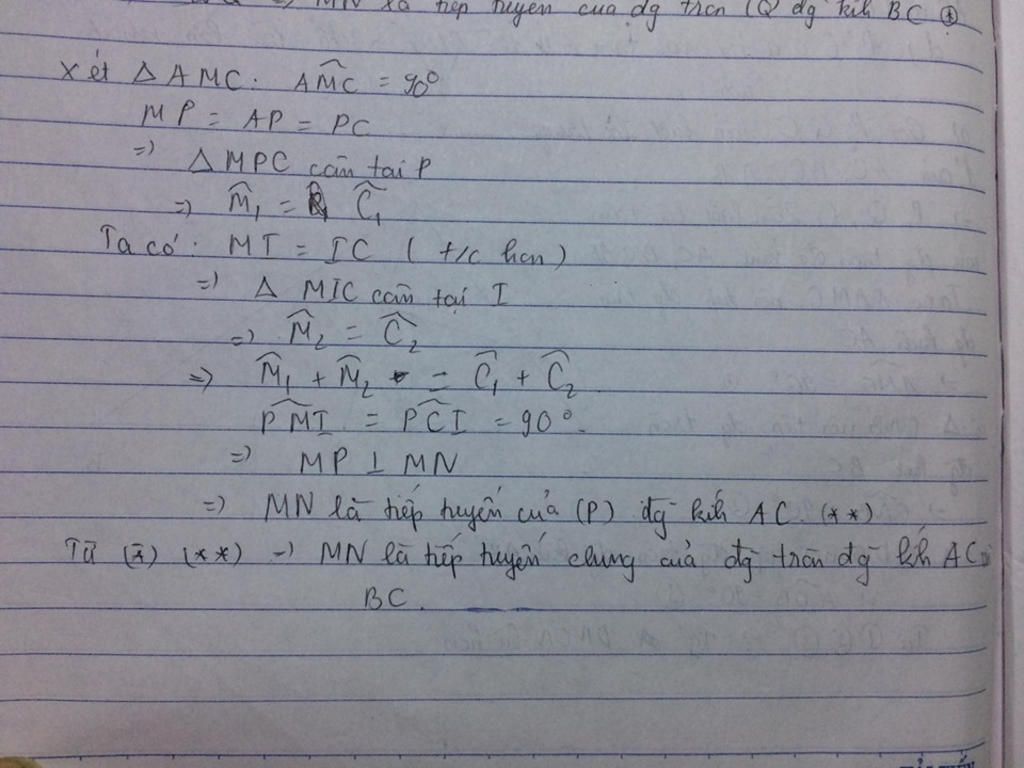 => MN là tiếp tuyến của đg tròn (Q đg kih BC (*)
Xét △ AMC. AMC = 90°
MP = AP = PC
=> △ MPC cân tại P
=> M₁ = C₁
Ta có: MI = IC ( t/c hcn )
=> △ MIC cân tại I
=> M₂ = C₂
=> M₁ + M₂ = C₁ + C₂
PMI = PCI = 90°.
=> MP ⊥ MN
=> MN là tiếp tuyến của (P) đg kíh AC. (**)
Từ (*) (**) => MN là tiếp tuyến chung của đg tròn đg kíh AC
BC.